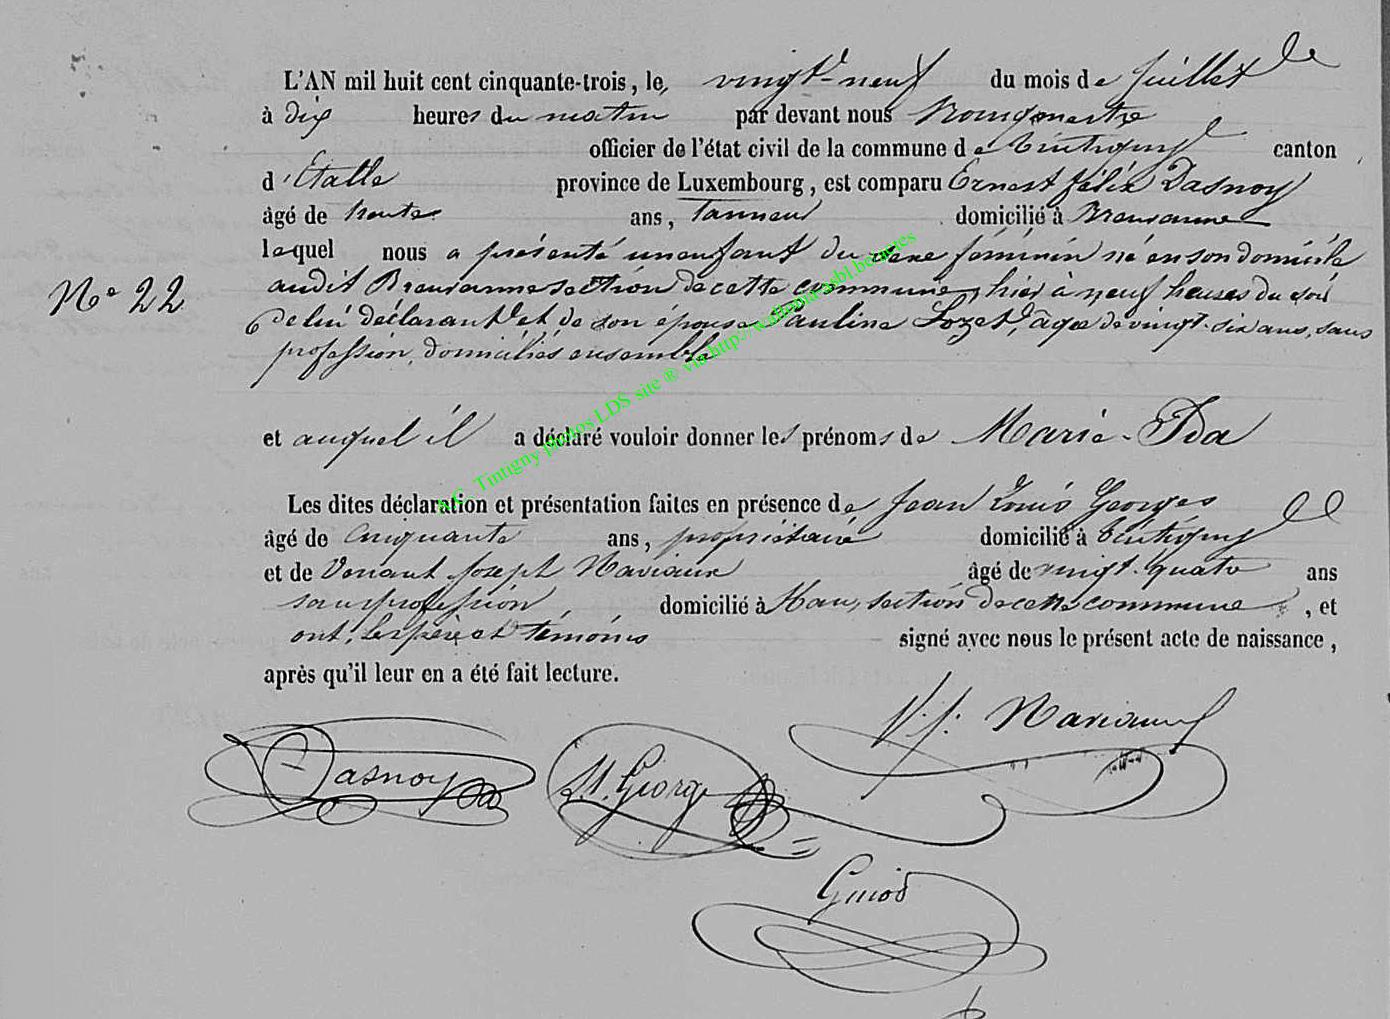 L'AN mil huit cent cinquante-trois, le, vingt-neuf du mois de Juillet
à dix heures du matin par devant nous Bourgmestre
officier de l'état civil de la commune de Tintigny canton
d'Etalle province de Luxembourg, est comparu Ernest félix Dasnoy
âgé de trente ans, Tanneur domicilié à Breuvanne
lequel nous a présenté un enfant du sexe féminin né en son domicile
audit Breuvanne section de cette commune, hier à neuf heures du soir
de lui déclarant et de son épouse Pauline Lozet, âgée de vingt-six ans, sans
profession, domiciliés ensemble
N° 22
et auquel il a déclaré vouloir donner les prénoms de Marie-Ida
Les dites déclaration et présentation faites en présence de Jean Louis Georges
âgé de Cinquante ans, propriétaire domicilié à Tintigny
et de Venant Joseph Naviaux âgé de vingt-quatre ans
sans profession, domicilié à Han, section de cette commune, et
ont, les père et témoins signé avec nous le présent acte de naissance,
après qu'il leur en a été fait lecture.
V. J. Naviaux
Dasnoy Georges
Guiot
A.C. Tintigny photos LDS site ® via http://wallonia-asbl.be/actes